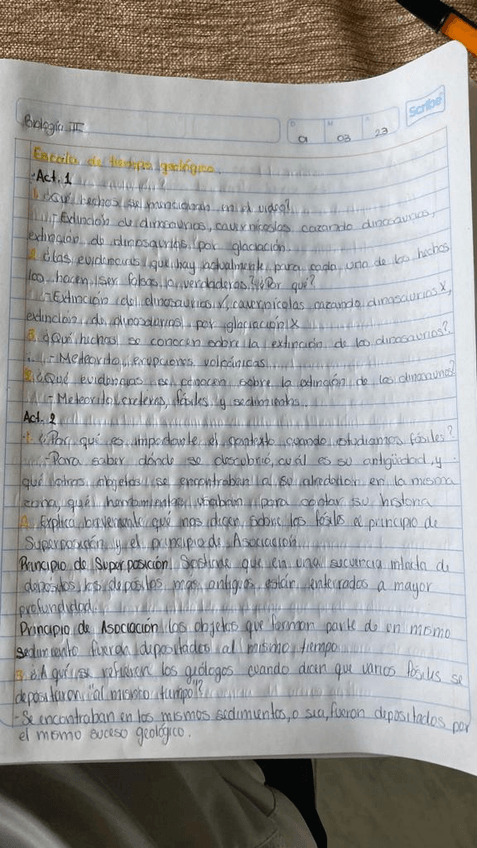 Scribe
Biología II
D M A
01 03 23
Escala de tiempo geológico.
- Act. 1
1. ¿Qué hechos se mencionan en el video?
- Extinción de dinosaurios, cavernícolas cazando dinosaurios,
extinción de dinosaurios por glaciación.
2. ¿Las evidencias que hay actualmente para cada uno de los hechos
los hacen ser falsos o verdaderos? ¿Por qué?
- Extinción del dinosaurios ✓, cavernícolas cazando dinosaurios X,
extinción de dinosaurios por glaciación X
3. ¿Qué hechos se conocen sobre la extinción de los dinosaurios?
- Meteorito, erupciones volcánicas.
¿Qué evidencias se conocen sobre la extinción de los dinosaurios?
- Meteorito, cráteres, fósiles y sedimentos.
Act. 2
1. ¿Por qué es importante el contexto cuando estudiamos fósiles?
- Para saber dónde se descubrió, cuál es su antigüedad, y
qué otros objetos se encontraban a su alrededor en la misma
zona, qué herramientas usaban para contar su historia
2. Explica brevemente qué nos dicen sobre los fósiles el principio de
Superposición y el principio de Asociación.
Principio de Superposición Sostiene que en una secuencia intacta de
depósitos, los depósitos más antiguos están enterrados a mayor
profundidad.
Principio de Asociación Los objetos que forman parte de un mismo
sedimento fueron depositados al mismo tiempo.
3. ¿A qué se refieren los geólogos cuando dicen que varios fósiles se
depositaron "al mismo tiempo"?
- Se encontraban en los mismos sedimentos, o sea, fueron depositados por
el mismo suceso geológico.